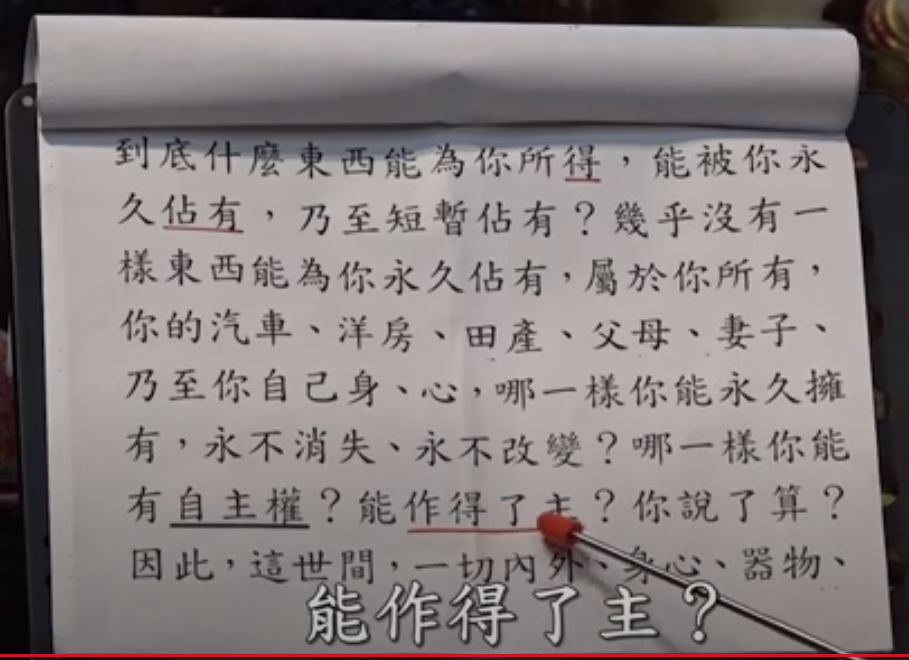 到底什麼東西能為你所得，能被你永
久佔有，乃至短暫佔有？幾乎沒有一
樣東西能為你永久佔有，屬於你所有，
你的汽車、洋房、田產、父母、妻子、
乃至你自己身、心，哪一樣你能永久擁
有，永不消失、永不改變？哪一樣你能
有自主權？能作得了主？你說了算？
因此，這世間，一切內外、身心、器物、
能作得了主？